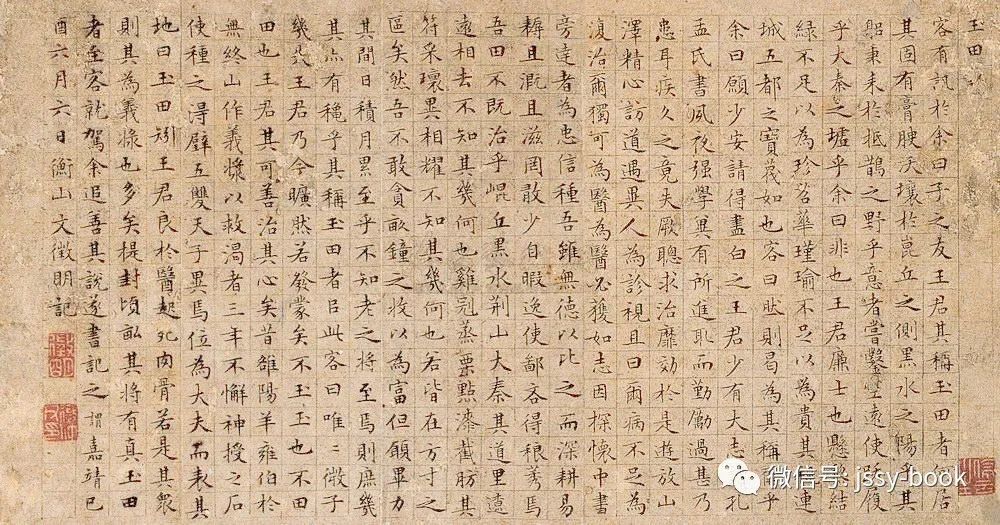 玉田
客有訊於余曰子之友王君其稱玉田者居
其固有膏腴沃壤於崑丘之側黑水之陽乎其
躬秉耒於抵鵲之野乎意者嘗鑿空遠使踐履
乎大秦之墟乎余曰非也王君廉士也懸黎結
緑不足以為珍苕華瑾瑜不足以為貴其連
城五都之寶蔑如也客曰然則曷為其稱乎
余曰願少安請得盡白之王君少有大志孔
孟氏書夙夜强學兾有所進耽而勤勵過甚乃
患耳疾久之竟失厥聰求治靡効於是遊放山
澤精心訪道遇異人為診視且曰爾病不足為
復治爾獨可為醫為醫必獲如志因探懷中書
旁達者為忠信種吾雖無德以比之而深耕易
耨且溉且滋罔敢少自暇逸使鄙吝得稂莠焉
吾田不既治乎崐丘黑水荆山大秦其道里遠
遠相去不知其幾何也雞冠蒸栗點漆截肪其
符采瓌異相耀不知其幾何也若皆在方寸之
區矣然吾不敢貪畝鐘之收以為富但願畢力
其間日積月累至乎不知老之將至焉則庶幾
其亦有穐乎其稱玉田者吕此客曰唯〻微子
幾失王君乃今曠然若發蒙矣不玉玉也不田
田也王君其可善治其心矣昔雒陽羊雍伯於
無終山作義漿以救渴者三年不懈神授之石
使種之淂璧五雙天子異焉位為大夫而表其
地曰玉田矧王君良於醫起死肉骨若是其衆
則其為義漿也多矣提封頃畝其將有真玉田
者至客就駕余追善其說遂書記之 嘉靖已
酉六月六日衡山文徵明記
微信号: jssy-book